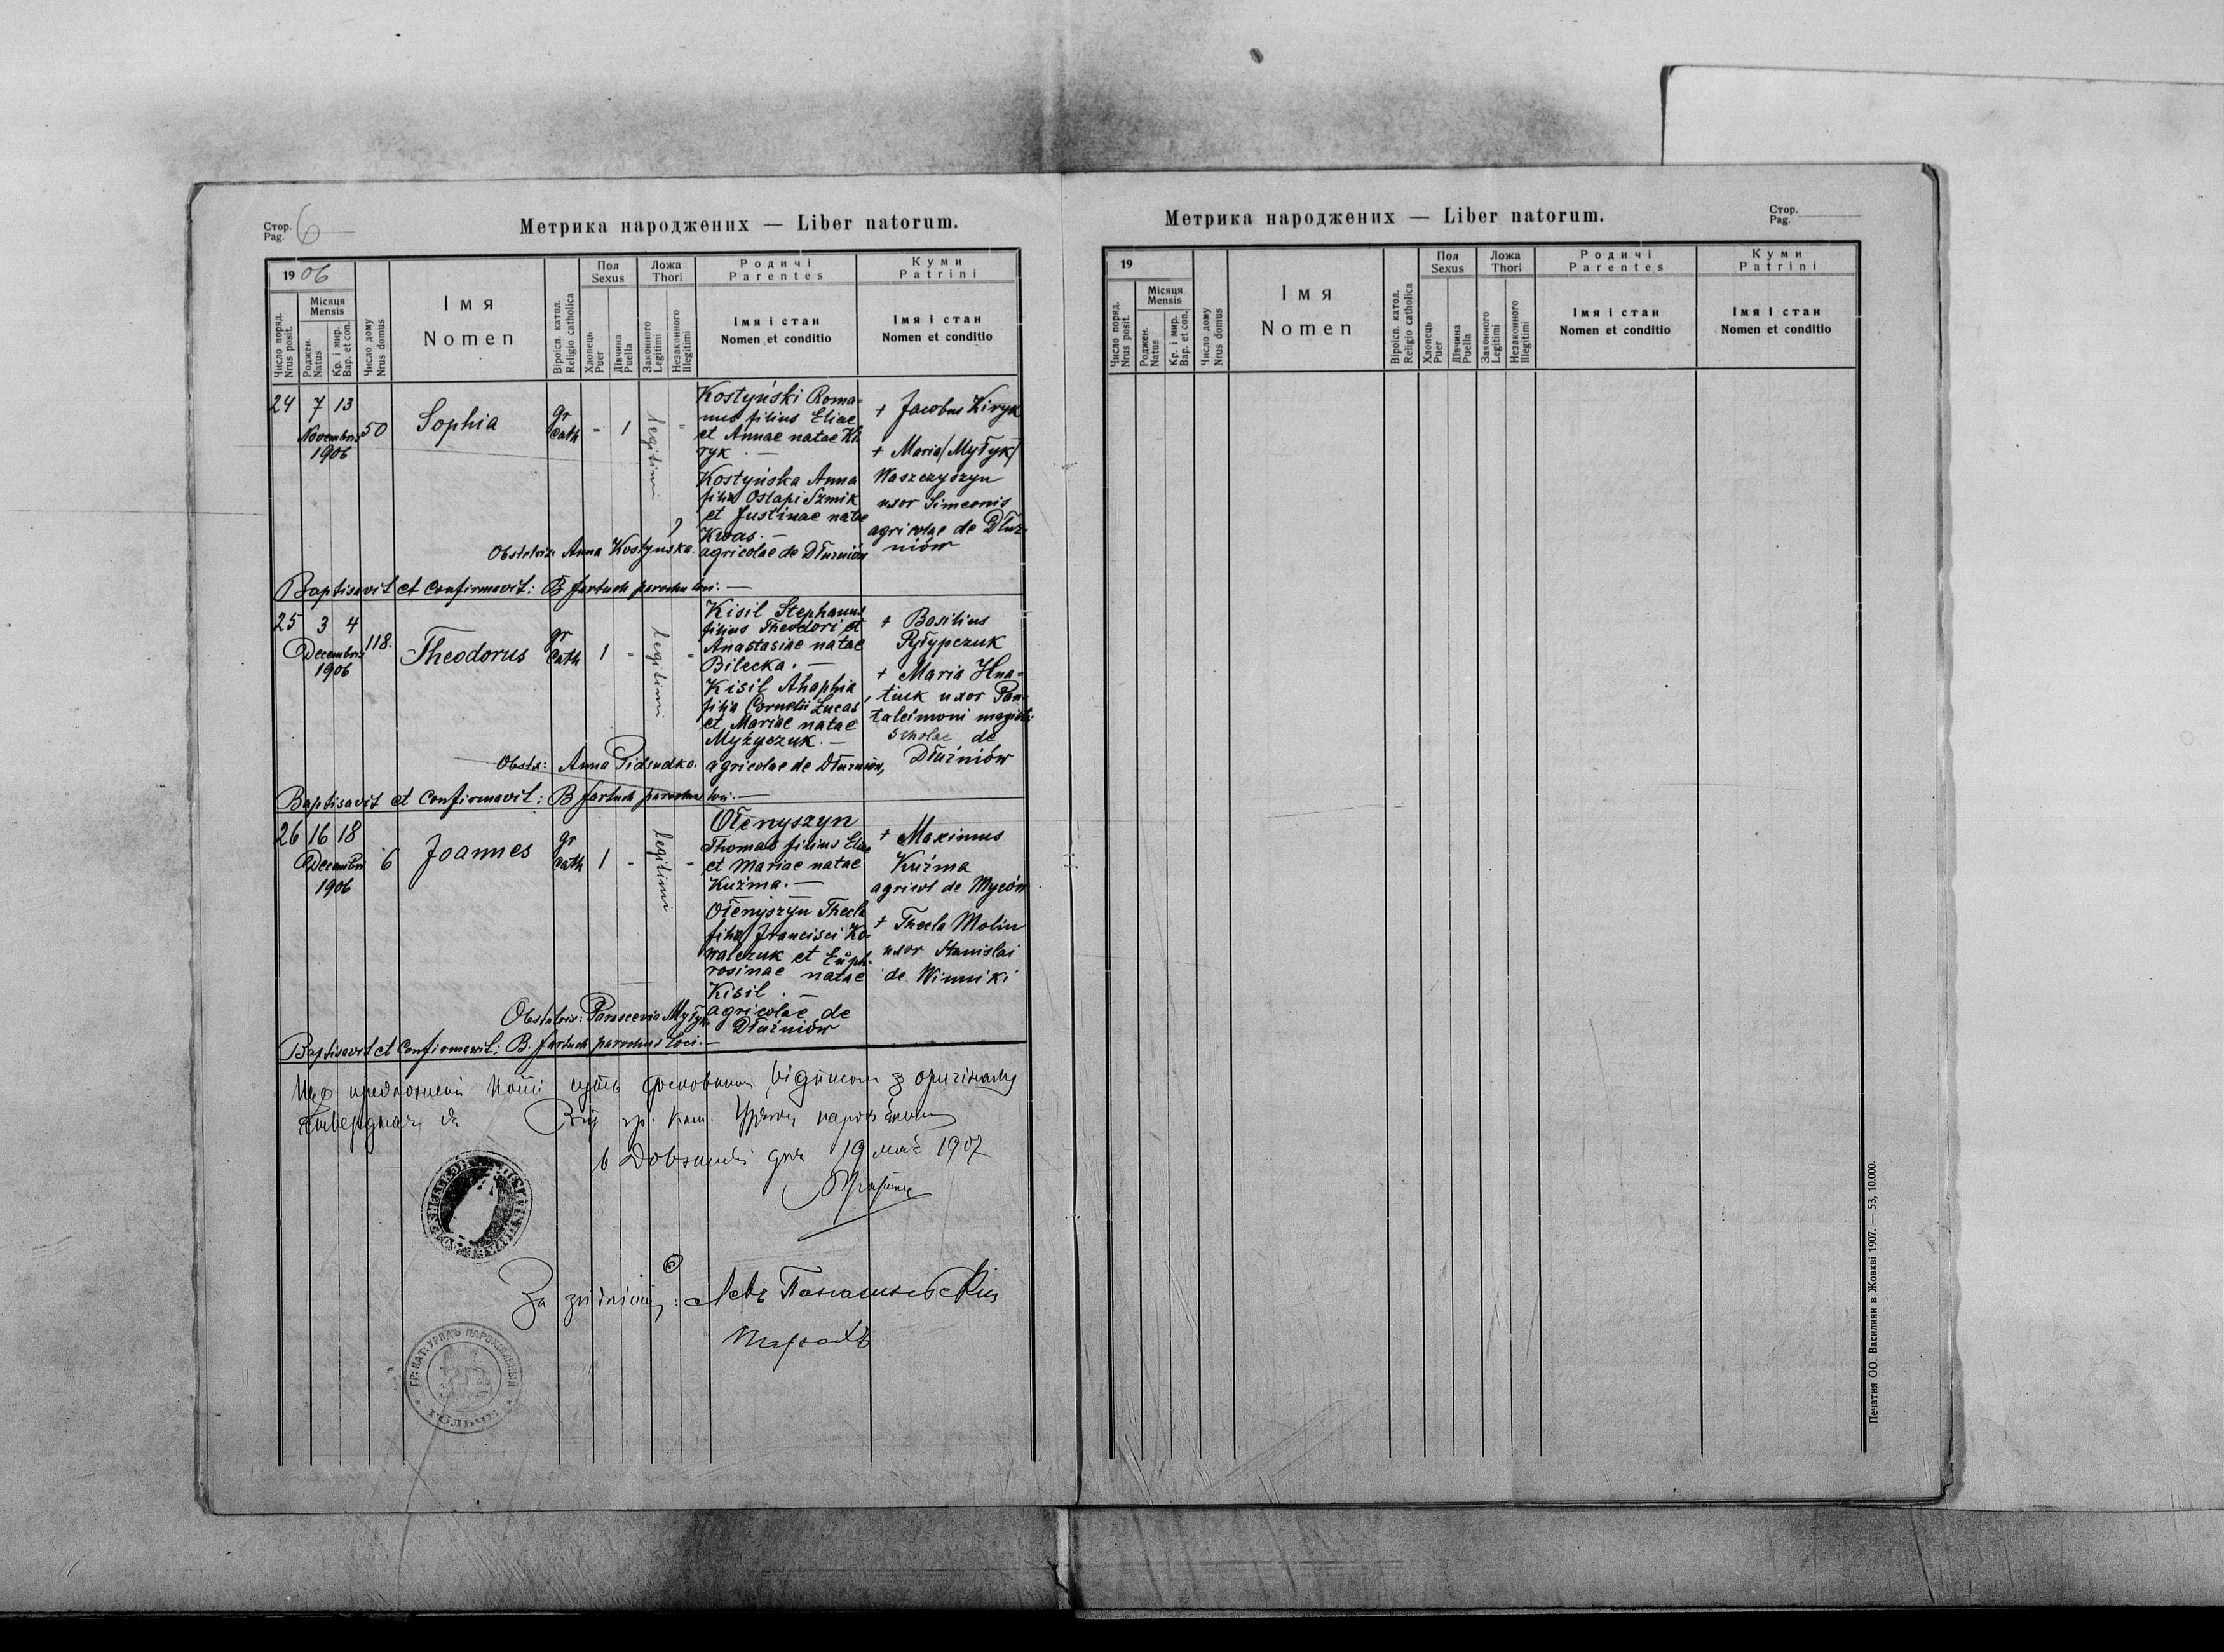 Стор.
Pag. 6
Метрика народжених — Liber natorum.
1906
Число поряд.
Nrus posit.
Місяця
Mensis
Роджен.
Natus
Кр. і мир.
Bap. et con.
Число дому
Nrus domus
Імя
Nomen
Віроісп. катол.
Religio catholica
Пол
Sexus
Хлопець
Puer
Дівчина
Puella
Ложа
Thori
Законного
Legitimi
Незаконного
Illegitimi
Родичі
Parentes
Імя і стан
Nomen et conditio
Куми
Patrini
Імя і стан
Nomen et conditio
24 7 13
Novembris
1906
50
Sophia
gr
Cath
- 1
legitimi
"
Kostyński Roma=
nus filius Eliae
et Annae natae Ki
ryk. —
Kostyńska Anna
filia Ostapi Szmik
et Justinae natae
Kwas. —
agricolae de Dłużniów
+ Jacobus Kiryk
+ Maria (Myłyk)
Waszczyszyn
uxor Simeonis
agricolae de Dłuż
niów
Obstetrix Anna Kostyńska.
Baptisavit et Confirmavit: B Jartuch parochus loci. —
25 3 4
Decembris
1906
118.
Theodorus
gr
Cath
1 "
legitimi
"
Kisil Stephanus
filius Theodori et
Anastasiae natae
Bilecka. —
Kisil Ahaphia
filia Cornelii Lucas
et Mariae natae
Myżyczuk. —
agricolae de Dłużniów,
+ Basilius
Pyłypczuk
+ Maria Hna=
tiuk uxor Pan=
taleimoni magistri
scholae de
Dłużniów
Obstx: Anna Pidsudko.
Baptisavit et Confirmavit: B Jartuch parochus loci. —
26 16 18
Decembris
1906
6
Joannes
gr
Cath
1 -
legitimi
-
Ołenyszyn
Thomas filius Eliae
et Mariae natae
Kuźma. —
Ołenyszyn Thecla
filia Francisci Ko=
walczuk et Euph=
rosinae natae
Kisil. —
agricolae de
Dłużniów
+ Maximus
Kuźma
agricol de Myców
+ Thecla Molin
uxor Stanislai
de Winniki
Obstetrix: Parascevia Myłyk
Baptisavit et Confirmavit: B. Jartuch parochus loci. —
з оригіналу
гр. кат.
дня 19 мая 1907
За : Левъ
Парохъ
ГР: КАТ: УРЯДЪ ПАРОХІАЛЬНЫЙ
ГОЛЬЧЕ
Метрика народжених — Liber natorum.
Стор.
Pag.
19
Число поряд.
Nrus posit.
Місяця
Mensis
Роджен.
Natus
Кр. і мир.
Bap. et con.
Число дому
Nrus domus
Імя
Nomen
Віроісп. катол.
Religio catholica
Пол
Sexus
Хлопець
Puer
Дівчина
Puella
Ложа
Thori
Законного
Legitimi
Незаконного
Illegitimi
Родичі
Parentes
Імя і стан
Nomen et conditio
Куми
Patrini
Імя і стан
Nomen et conditio
Печатня ОО. Василиян в Жовкві 1907. — 53, 10.000.